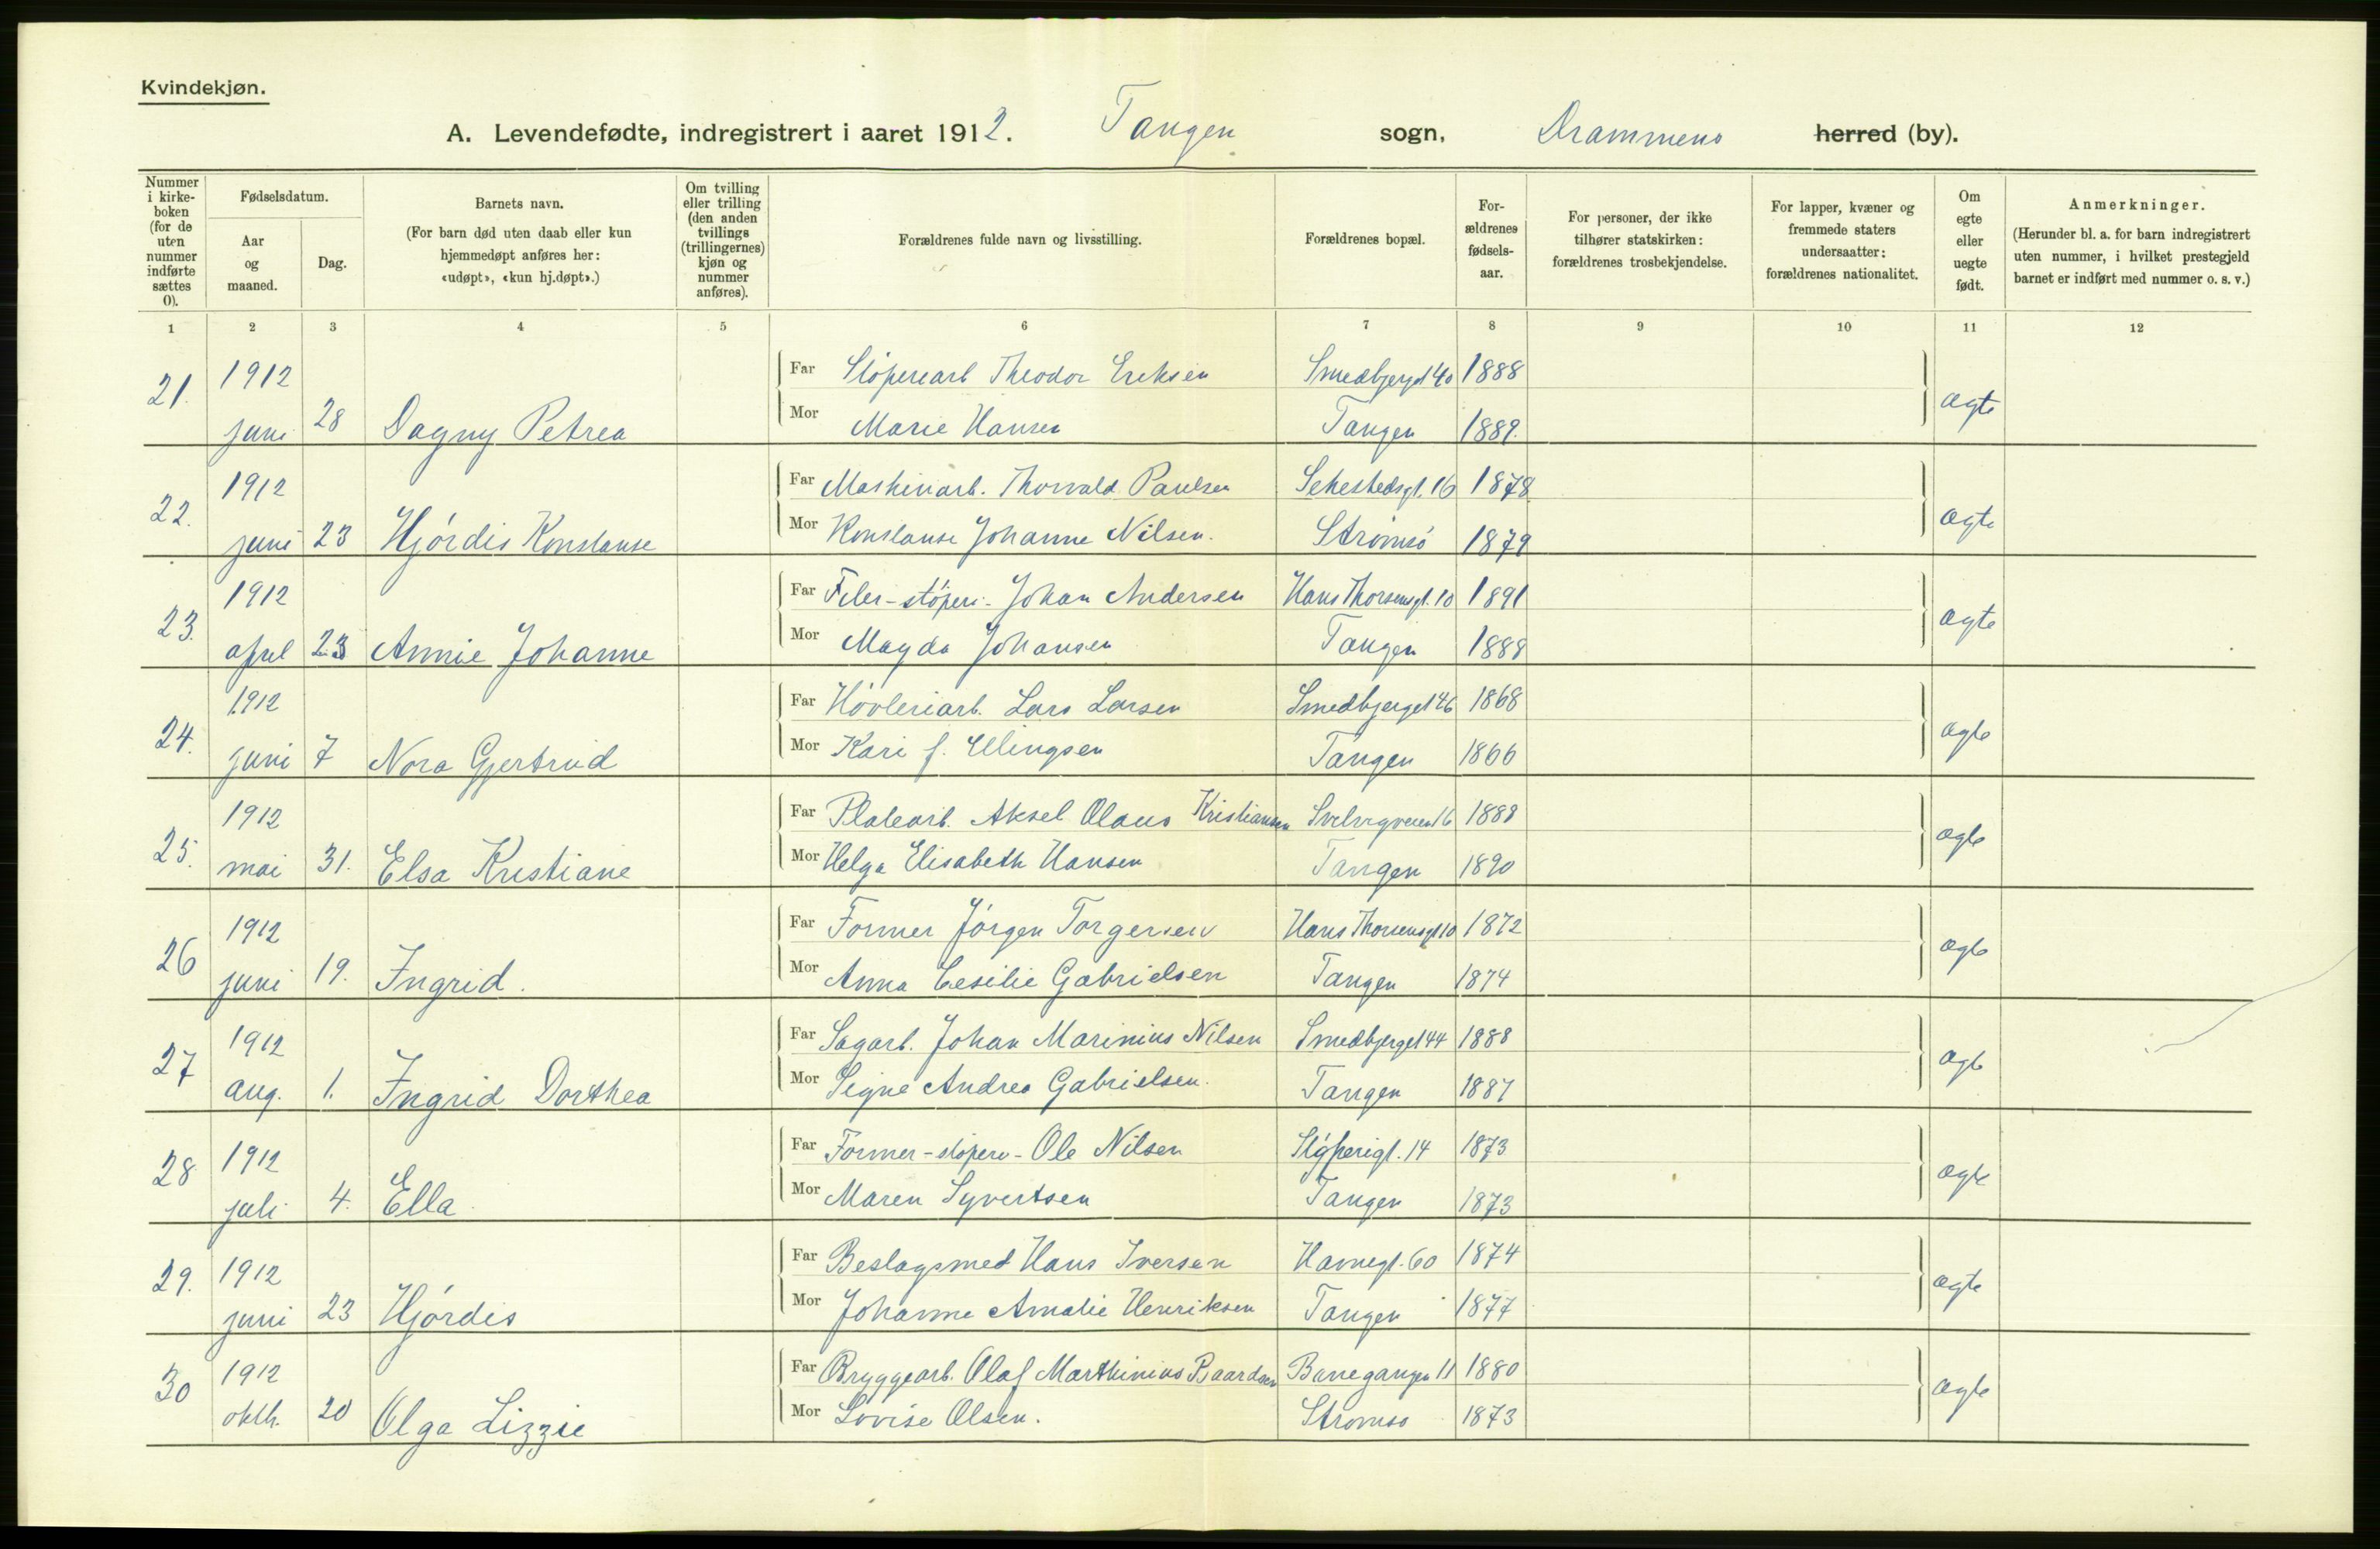 Kvindekjøn.
A. Levendefødte, indregistrert i aaret 1912. Tangen sogn, Drammens herred (by).
Nummer i kirkeboken (for de uten nummer indførte sættes 0).
Fødselsdatum.
Aar og maaned.
Dag.
Barnets navn.
(For barn død uten daab eller kun hjemmedøpt anføres her: «udøpt», «kun hj.døpt».)
Om tvilling eller trilling (den anden tvillings (trillingernes) kjøn og nummer anføres).
Forældrenes fulde navn og livsstilling.
Forældrenes bopæl.
For-ældrenes fødsels-aar.
For personer, der ikke tilhører statskirken: forældrenes trosbekjendelse.
For lapper, kvæner og fremmede staters undersaatter: forældrenes nationalitet.
Om egte eller uegte født.
Anmerkninger.
(Herunder bl. a. for barn indregistrert uten nummer, i hvilket prestegjeld barnet er indført med nummer o. s. v.)
1 2 3 4 5 6 7 8 9 10 11 12
21. 1912 Far Støperiarb Theodor Eriksen Smedbjerget 40 1888
juni 28 Dagny Petrea Mor Marie Hansen Tangen 1889. ægte
22. 1912 Far Maskinarb. Thorvald Paulsen Sehestedsgt. 16 1878
juni 23 Hjórdis Konstanse Mor Konstanse Johanne Nilsen. Strømsó 1879 ægte
23. 1912 Far Filer-støperi- Johan Andersen Hans Thorsensgt. 10 1891
april 23 Annie Johanne Mor Magda Johansen Tangen 1888 ægte
24. 1912 Far Hóvleriarb. Lars Larsen Smedbjerget 46 1868
juni 7 Nora Gjertrud Mor Kari f. Ellingsen Tangen 1866 ægte
25. 1912 Far Platearb. Aksel Olaus Kristiansen Svelvigveien 16 1888
mai 31. Elsa Kristiane Mor Helga Elisabeth Hansen Tangen 1890 ægte
26 1912 Far Former Jórgen Torgersen Hans Thorsensgt 10 1872
juni 19. Ingrid. Mor Anna Cesilie Gabrielsen Tangen 1874 ægte
27 1912 Far Sagarb. Johan Marinius Nilsen Smedbjerget 44 1888
aug. 1. Ingrid Dorthea Mor Signe Andrea Gabrielsen. Tangen 1887 ægte
28 1912 Far Former-støperi- Ole Nilsen Stóperigt. 14 1873
juli 4. Ella Mor Maren Syvertsen Tangen 1873 ægte
29. 1912 Far Beslagsmed Hans Iversen Havnegt. 60 1874
juni 23 Hjórdis Mor Johanne Amalie Henriksen Tangen 1877 ægte
30 1912 Far Bryggearb. Olaf Marthinius Baardsen Banegangen 11 1880
oktb. 20 Olga Lizzie Mor Lovise Olsen. Strømsø 1873 ægte